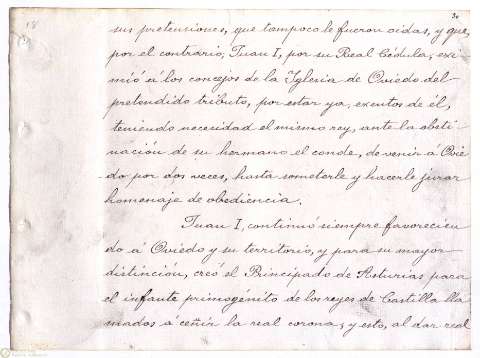 sus pretensiones, que tampoco le fueron oidas, y que,
por el contrario, Juan I, por su Real Cédula, exi-
mió á los concejos de la Iglesia de Oviedo del
pretendido tributo, por estar ya, exentos de él,
teniendo necesidad el mismo rey, ante la obsti-
nación de su hermano el conde, de venir á Ovie
do por dos veces, hasta someterle y hacerle jurar
homenaje de obediencia.
Juan I, continuó siempre favorecien
do á Oviedo y su territorio, y para su mayor
distinción, creó el Principado de Asturias para
el infante primogénito de los reyes de Castilla lla
mados á ceñir la real corona, y esto, al dar real